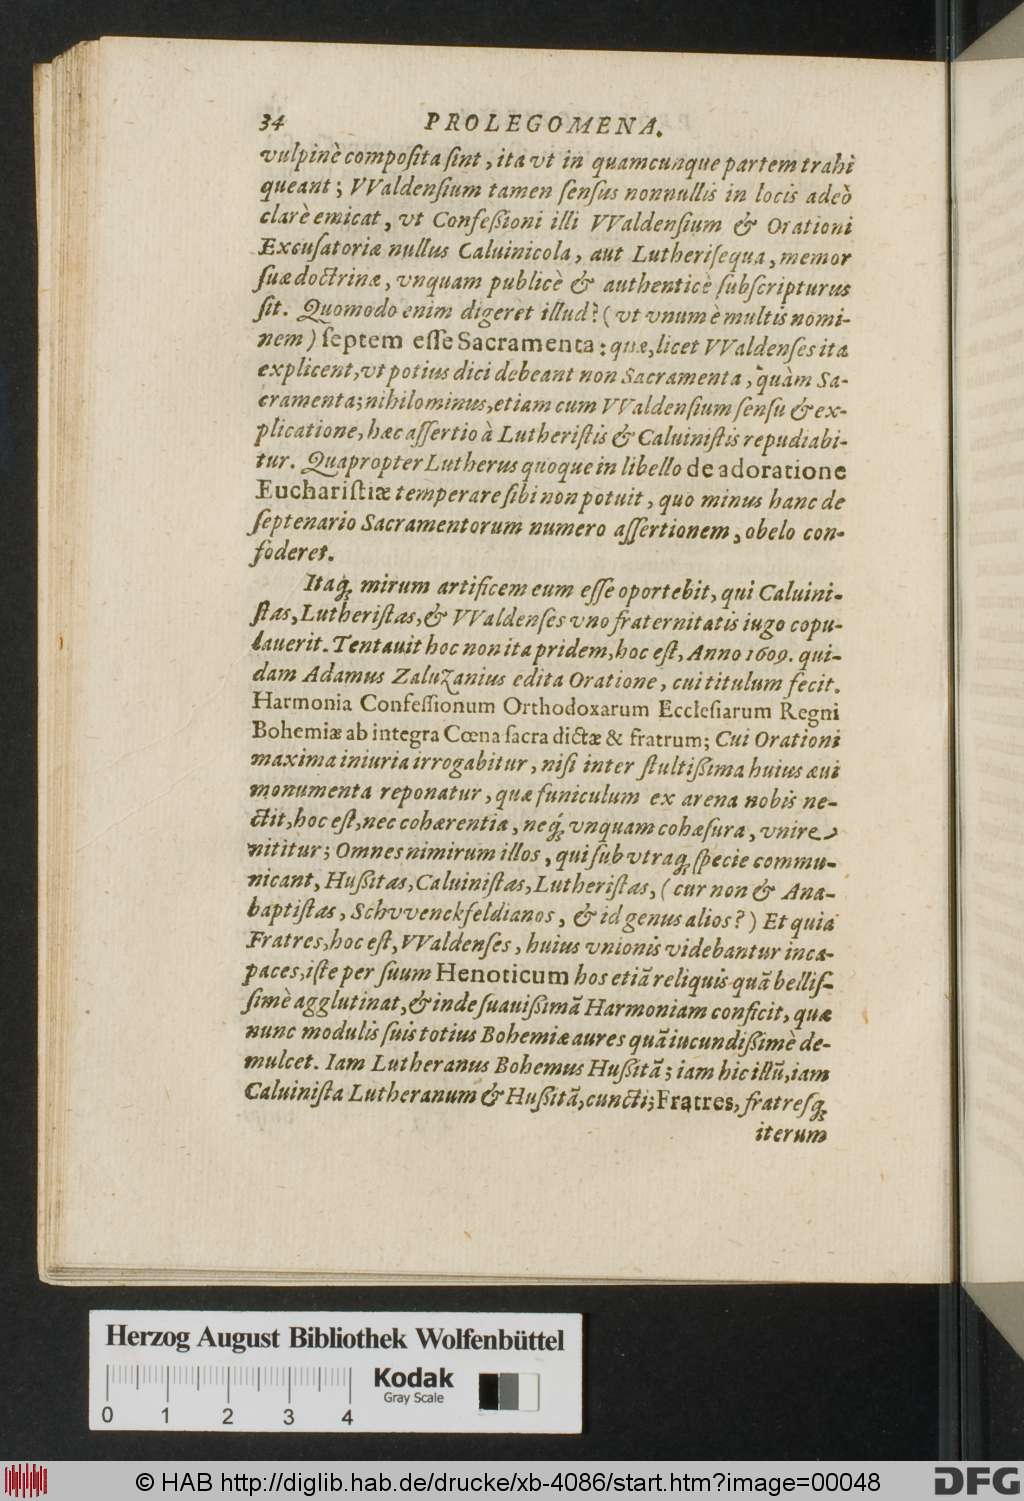 34 PROLEGOMENA.
vulpinè composita sint, ita vt in quamcunque partem trahi
queant; VValdensium tamen sensus nonnullis in locis adeò
clarè emicat, vt Confeßioni illi VValdensium & Orationi
Excusatoriæ nullus Caluinicola, aut Lutherisequa, memor
suæ doctrinæ, vnquam publicè & authenticè subscripturus
sit. Quomodo enim digeret illud? (vt vnum è multis nomi-
nem) septem esse Sacramenta: quæ, licet VValdenses ita
explicent, vt potius dici debeant non Sacramenta, quàm Sa-
cramenta; nihilominus, etiam cum VValdensium sensu & ex-
plicatione, hæc assertio à Lutheristis & Caluinistis repudiabi-
tur. Quapropter Lutherus quoque in libello de adoratione
Eucharistiæ temperare sibi non potuit, quo minus hanc de
septenario Sacramentorum numero assertionem, obelo con-
foderet.
Itaq; mirum artificem eum esse oportebit, qui Caluini-
stas, Lutheristas, & VValdenses vno fraternitatis iugo copu-
lauerit. Tentauit hoc non ita pridem, hoc est, Anno 1609. qui-
dam Adamus Zaluzanius edita Oratione, cui titulum fecit.
Harmonia Confessionum Orthodoxarum Ecclesiarum Regni
Bohemiæ ab integra Cœna sacra dictæ & fratrum; Cui Orationi
maxima iniuria irrogabitur, nisi inter stultißima huius æui
monumenta reponatur, quæ funiculum ex arena nobis ne-
ctit, hoc est, nec cohærentia, neq; vnquam cohæsura, vnire
nititur; Omnes nimirum illos, qui sub vtraq; specie commu-
nicant, Hußitas, Caluinistas, Lutheristas, (cur non & Ana-
baptistas, Schvvenckfeldianos, & id genus alios?) Et quia
Fratres, hoc est, VValdenses, huius vnionis videbantur inca-
paces, iste per suum Henoticum hos etiã reliquis quã bellis-
simè agglutinat, & inde suauißimã Harmoniam conficit, quæ
nunc modulis suis totius Bohemiæ aures quã iucundißimè de-
mulcet. Iam Lutheranus Bohemus Hußitã; iam hic illũ, iam
Caluinista Lutheranum & Hußitã, cuncti; Fratres, fratresq;
iterum
Herzog August Bibliothek Wolfenbüttel
Kodak
Gray Scale
0 1 2 3 4
© HAB http://diglib.hab.de/drucke/xb-4086/start.htm?image=00048
DFG